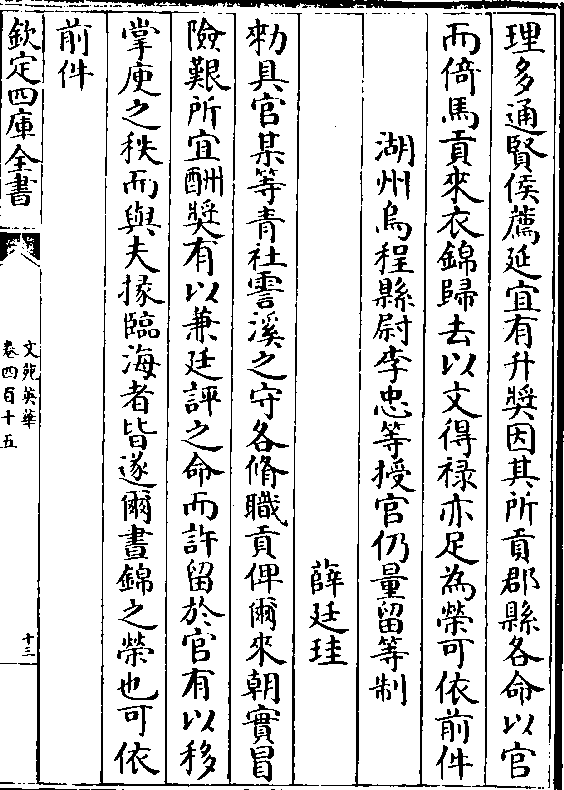 理多通賢侯薦延宜有升奬因其所貢郡縣各命以官
而倚馬貢來衣錦歸去以文得禄亦足為榮可依前件
湖州烏程縣尉李忠等授官仍量留等制
薛廷珪
勑具官某等青社霅溪之守各脩職貢俾爾來朝實冒
險艱所宜酬奬有以兼廷評之命而許留於官有以移
掌庾之秩而與夫掾臨海者皆遂爾晝錦之榮也可依
前件
欽定四庫全書
文苑英華
卷四百十五
十三